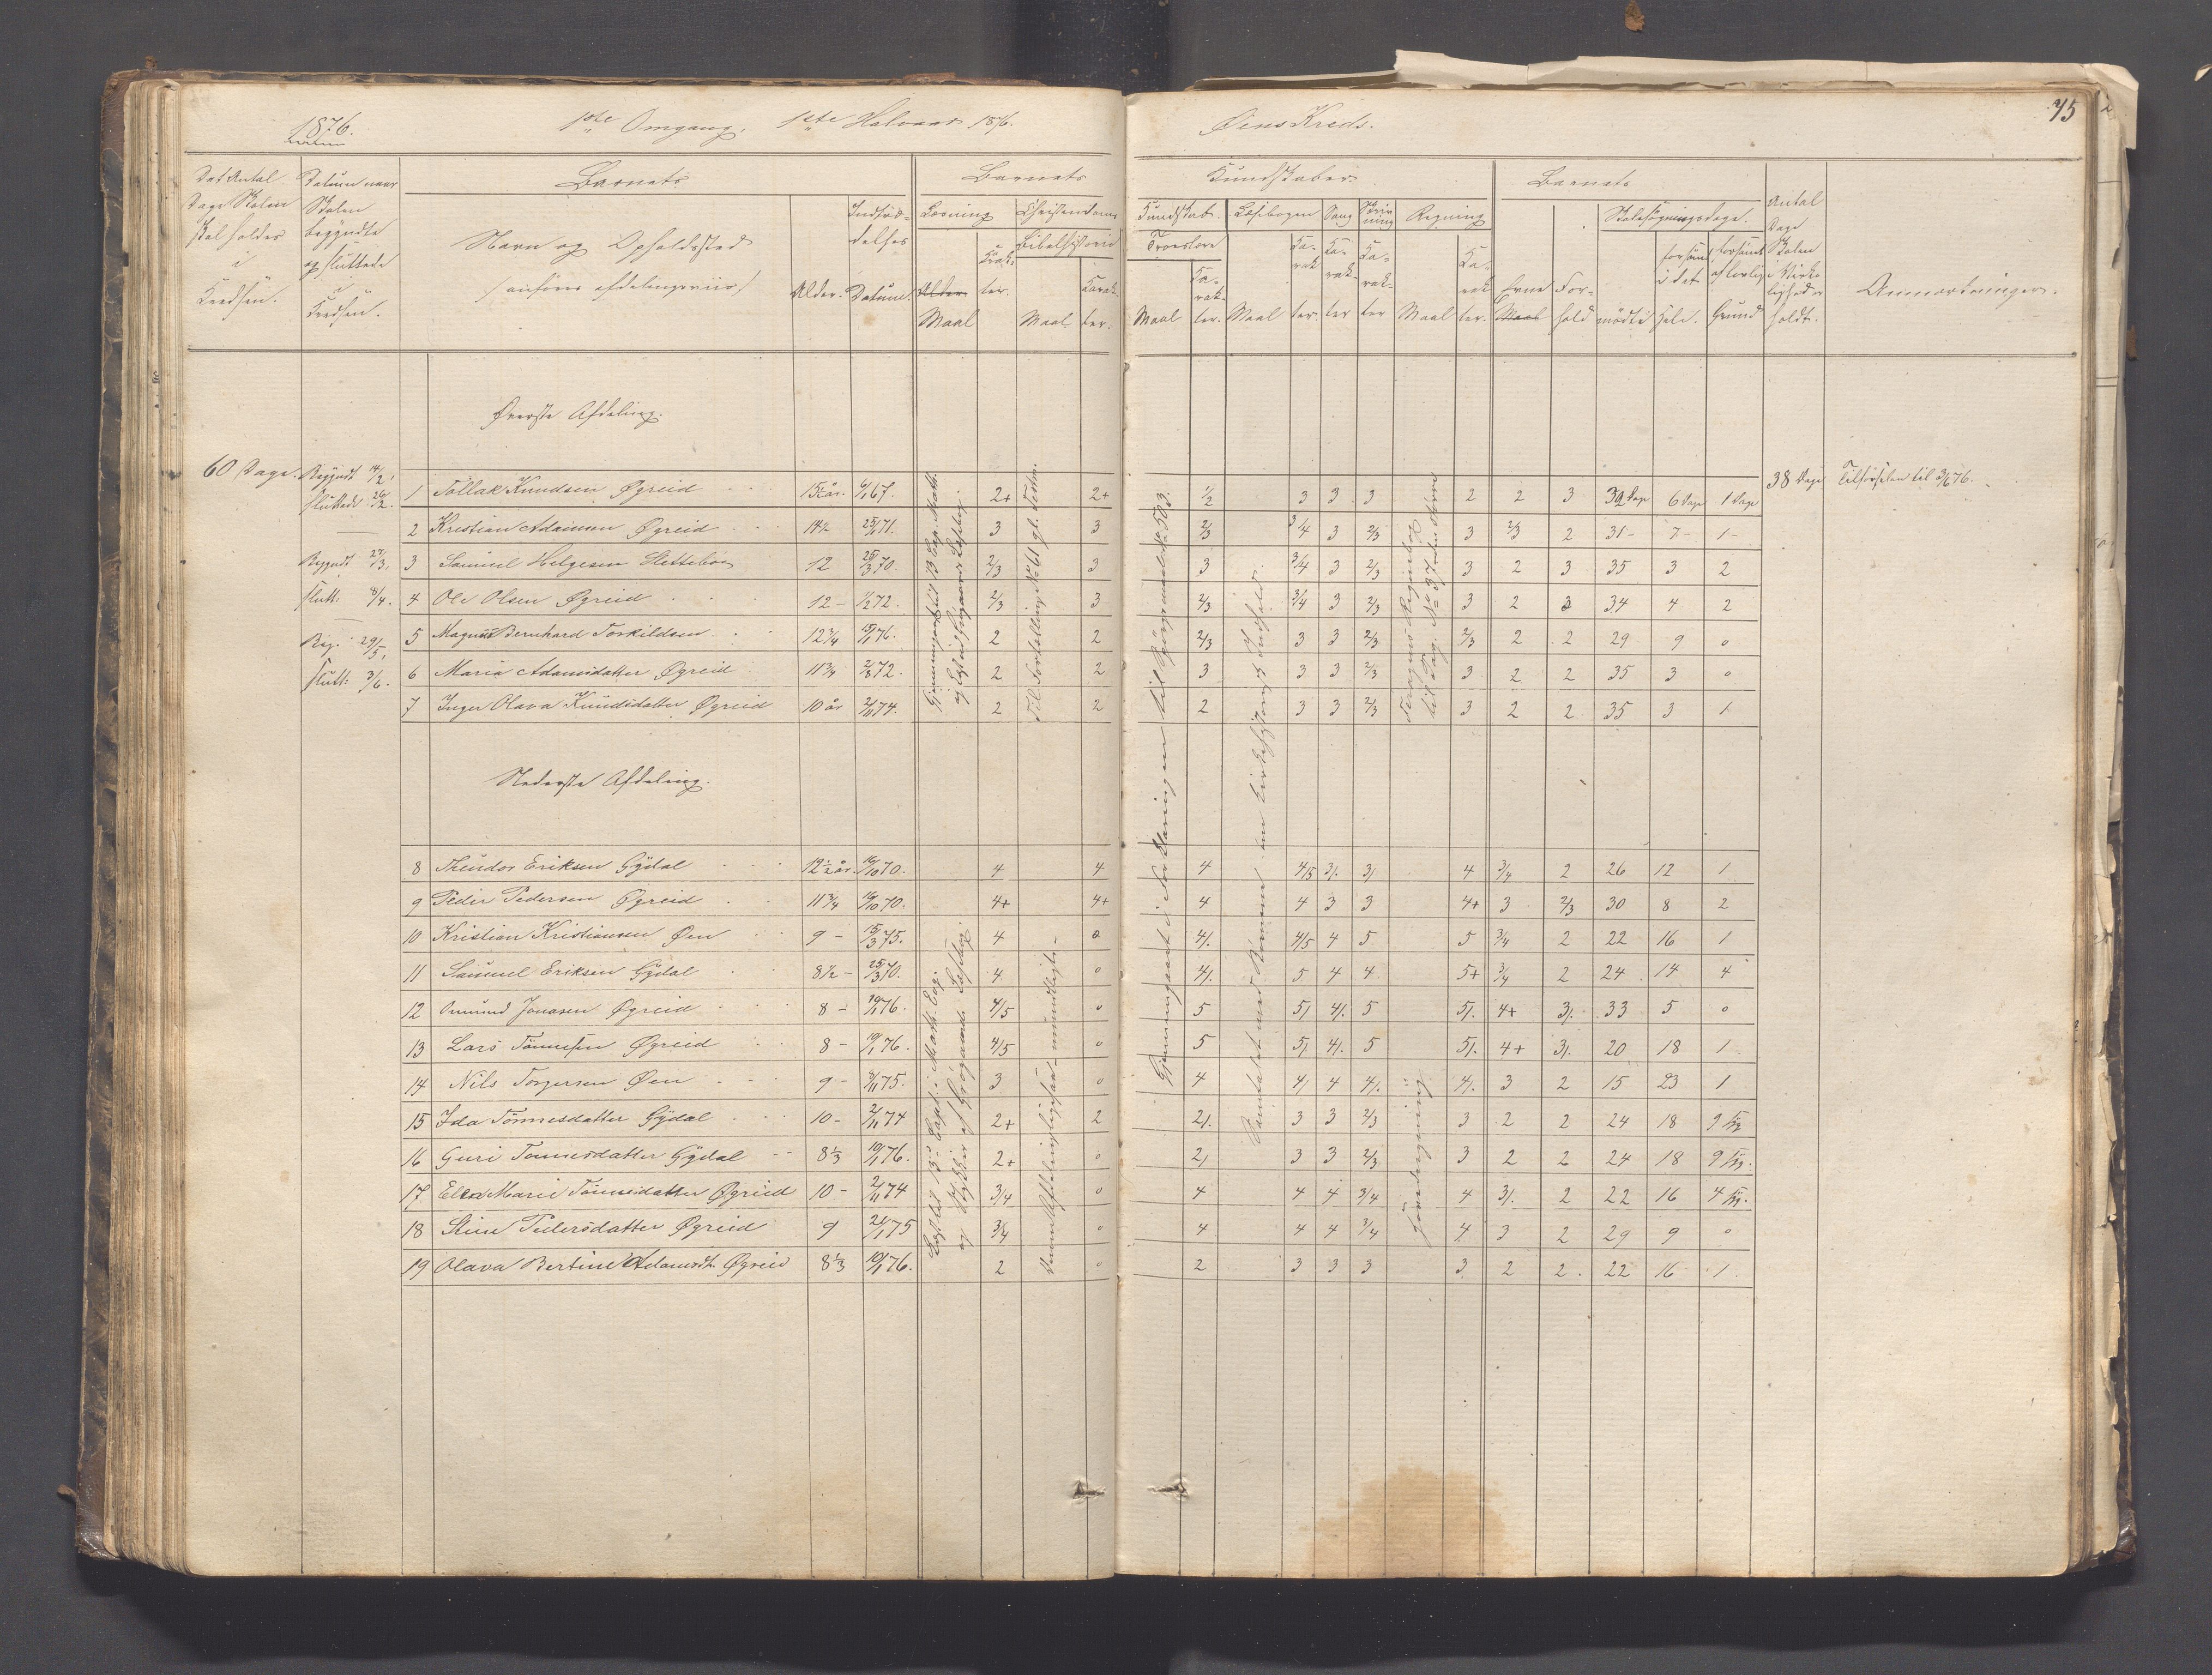 1876.
1ste Omgang, 1ste Halvaar 1876.
Øens Kreds.
75
Det Antal Dage Skolen skal holdes i Kredsen.
Datum naar Skolen begyndte og sluttede i Kredsen.
Barnets
Navn og Opholdssted
(anføres afdelingsviis)
Alder.
Indtræ-delses Datum.
Barnets
Kundskaber.
Læsning
Maal
Karak-ter.
Christendoms Kundskab.
Bibelhistorie
Maal
Karak-ter.
Troeslære
Maal
Ka-rak-ter.
Læsebogen
Maal
Ka-rak-ter.
Sang
Ka-rak-ter
Skriv-ning
Ka-rak-ter
Regning
Maal
Ka-rak-ter.
Barnets
Evne
For-hold
Skolesøgningsdage.
mødte
forsømt i det Hele.
forsømt af lovlig Grund
Antal Dage Skolen i Virke-ligheden holdt.
Anmærkninger.
Øverste Afdeling.
60 Dage.
Begyndt 14/2,
sluttede 26/2.
Begyndt 27/3,
slutt: 8/4.
Beg. 29/5,
slutt: 3/6.
1 Tollak Knudsen Øgreid 15 1/2 år. 6/1 67. 2+ 2+ 1/2 3 3 3 2 2 3 32 Dage 6 Dage 1 Dage
38 Dage
Tilførselen til 3/6 76.
2 Kristian Adamsen Øgreid 14 1/2 25/1 71. 3 3 2/3 3/4 3 2/3 3 2/3 2 31 - 7 - 1 -
3 Samuel Helgesen Slettebø 12 25/3 70. 2/3 3 3 3/4 3 2/3 3 2 3 35 3 2
4 Ole Olsen Øgreid 12 - 1/2 72. 2/3 3 2/3 3/4 3 2/3 3 2 3 34 4 2
5 Magnus Bernhard Torkildsen 12 3/4 15/1 76. 2 2 2/3 3 3 2/3 2/3 2 2 29 9 0
6 Maria Adamsdatter Øgreid 11 3/4 2/8 72. 2 2 3 3 3 2/3 3 2 2 35 3 0
7 Inger Olava Knudsdatter Øgreid 10 år 2/11 74. 2 2 2 3 3 2/3 3 2 2 35 3 1
Nederste Afdeling.
8 Theodor Eriksen Gydal 12 1/2 år 16/10 70. 4 4 4 4/5 3/. 3/ 4 3/4 2 26 12 1
9 Peder Pedersen Øgreid 11 3/4 16/10 70. 4+ 4+ 4 4 3 3 4+ 3 2/3 30 8 2
10 Kristian Kristiansen Øen 9 - 15/3 75. 4 0 4/. 4/5 4 5 5 3/4 2 22 16 1
11 Samuel Eriksen Gydal 8 1/2 - 25/3 70. 4 0 4/. 5 4 4 5+ 3/4 2 24 14 4
12 Omund Jonasen Øgreid 8 - 19/1 76. 4/5 0 5 5/ 4/. 5 5/. 4+ 3/. 33 5 0
13 Lars Tønnesen Øgreid 8 - 19/1 76. 4/5 0 5 5/ 4/. 5 5/. 4+ 3/. 20 18 1
14 Nils Torgersen Øen 9 - 3/11 75. 3 0 4 4/ 4 4/. 4/. 3 2 15 23 1
15 Ida Tønnesdatter Gydal 10 - 2/11 74 2+ 2 2/. 3 3 2/3 3 2 2 24 18 9
16 Guri Tønnesdatter Gydal 8 1/3 19/1 76. 2+ 0 2/ 3 3 2/3 3 2 2 24 18 9
17 Elea Marie Tønnesdatter Øgreid 10 - 2/11 74 3/4 0 4 4 4 3/4 4 3/. 2 22 16 4
18 Stine Pedersdatter Øgreid 9 21/1 75 3/4 0 4 4 4 3/4 4 3 2 29 9 0
19 Olava Bertine Adamsdt. Øgreid 8 1/3 19/1 76. 2 0 2 3 3 3 3 2 2 22 16 1